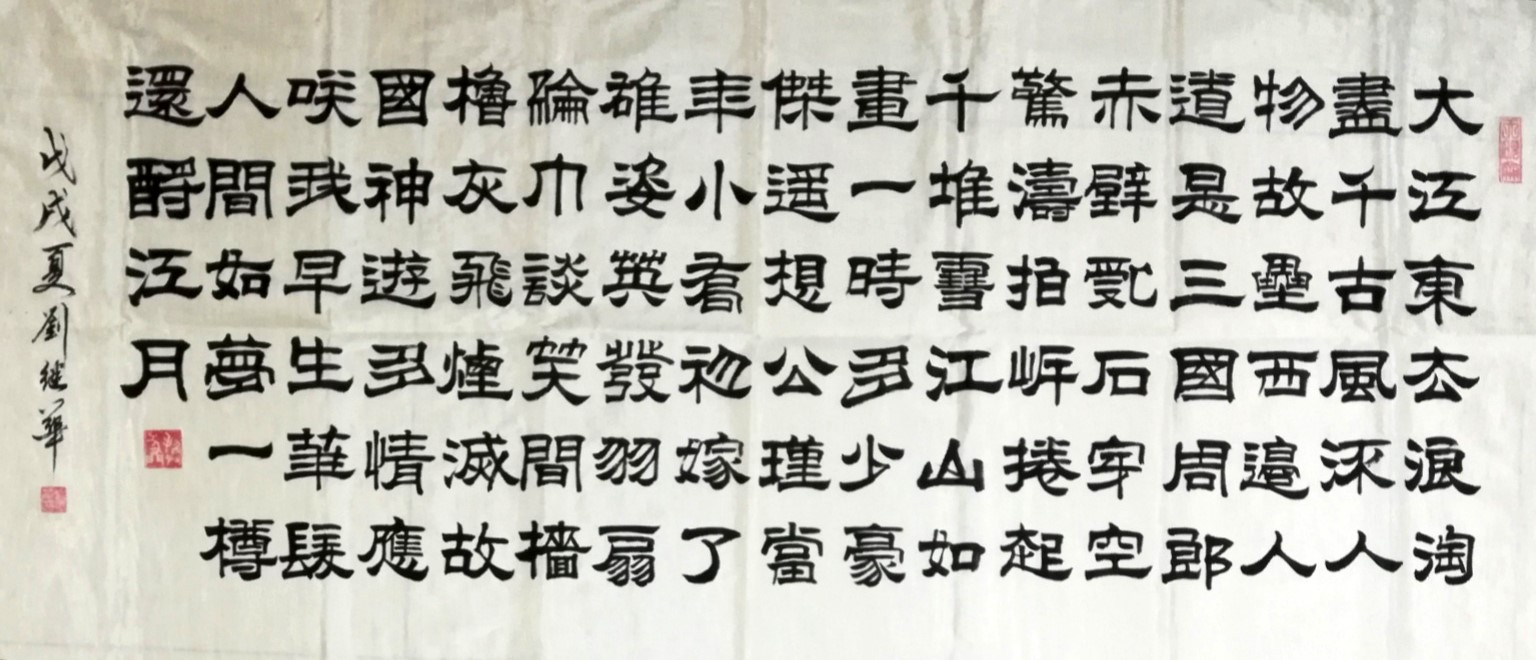 大江東去浪淘
盡千古風流人
物故壘西邊人
道是三國周郎
赤壁亂石穿空
驚濤拍岸捲起
千堆雪江山如
畫一時多少豪
傑遥想公瑾當
年小喬初嫁了
雄姿英發羽扇
綸巾談笑間檣
櫓灰飛煙滅故
國神遊多情應
咲我早生華髮
人間如夢一樽
還酹江月
戊戌夏劉继華